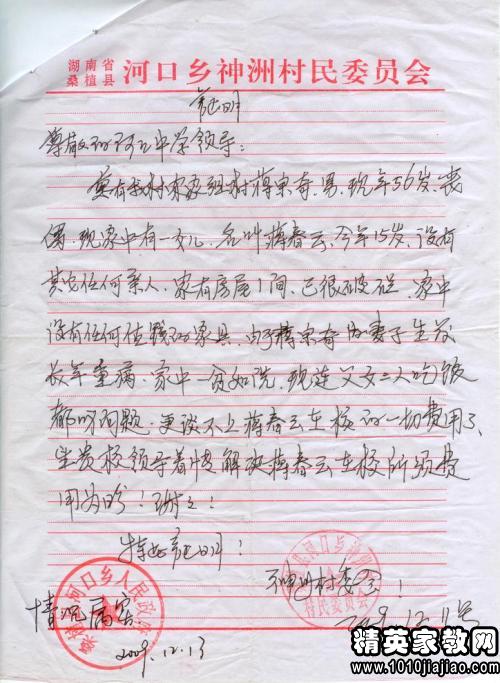 湖南省
桑植县 河口乡神洲村民委员会
证明
尊敬的河口中学领导：
兹有我村宋家组村蒋宗奇，男，现年56岁，丧
偶，现家中有一女儿，名叫蒋春云，今年15岁，没有
其它任何亲人，家有房屋1间，已很破烂，家中
没有任何值钱的家具，由于蒋宗奇的妻子生前
长年重病，家中一贫如洗，现连父女二人吃饭
都成问题，更谈不上蒋春云在校的一切费用了，
望贵校领导着情解决蒋春云在校所须费
用为盼！谢谢！
特此证明！
神洲村委会！
2009.12.11号
情况属实
2009.12.13
河口乡人民政府
精英家教网
www.1010jiajiao.com